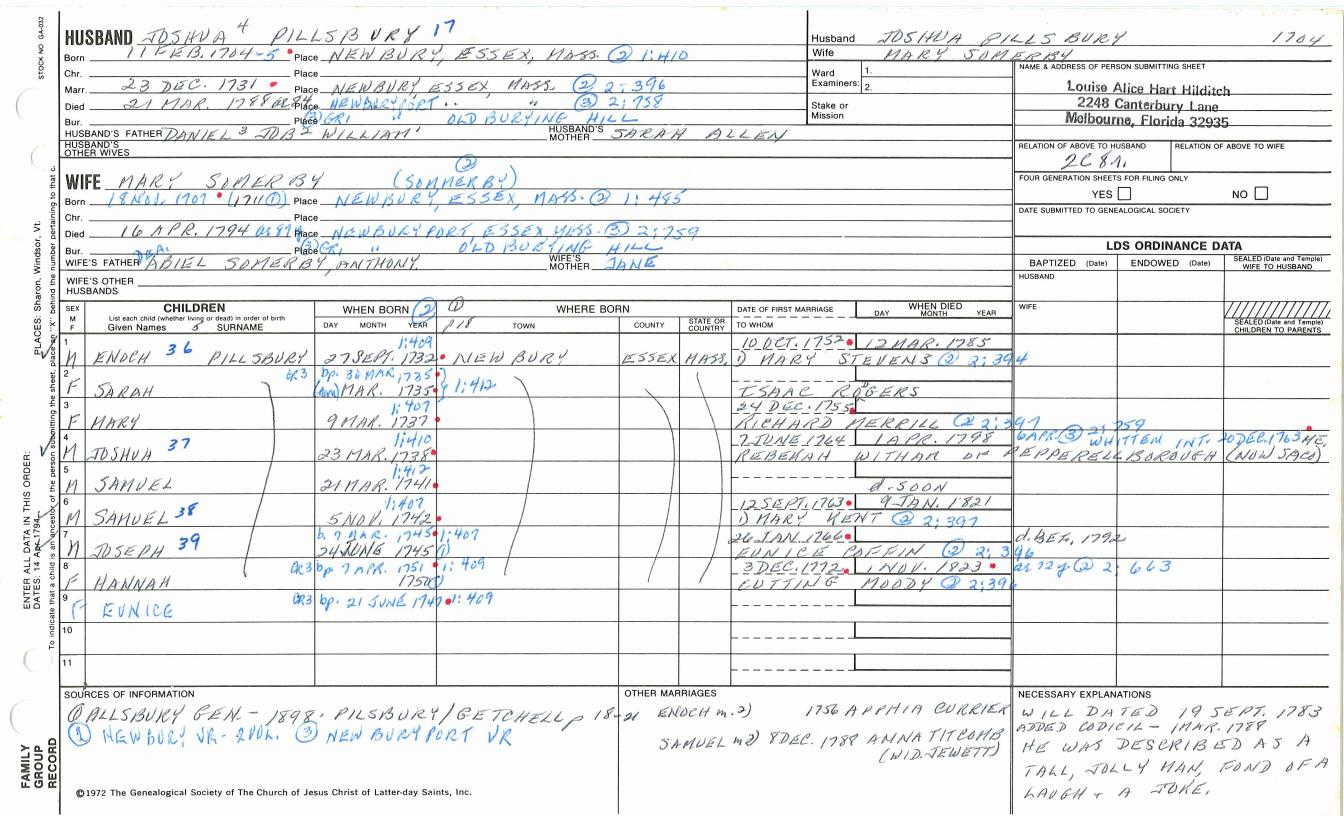 STOCK NO. GA-032
HUSBAND JOSHUA 4 PILLSBURY 17
Born 11 FEB. 1704-5 Place NEWBURY, ESSEX, MASS. ② 1:410
Chr. Place
Marr. 23 DEC. 1731 Place NEWBURY, ESSEX, MASS. ② 2:396
Died 21 MAR. 1788 Place NEWBURYPORT " " ③ 2:758
Bur. Place GR1 " OLD BURYING HILL
HUSBAND'S FATHER DANIEL 3 JOB 2 WILLIAM 1 HUSBAND'S MOTHER SARAH ALLEN
HUSBAND'S OTHER WIVES
Husband JOSHUA PILLSBURY 1704
Wife MARY SOMERBY
Ward Examiners: 1.
2.
Stake or Mission
NAME & ADDRESS OF PERSON SUBMITTING SHEET
Louise Alice Hart Hilditch
2248 Canterbury Lane
Melbourne, Florida 32935
RELATION OF ABOVE TO HUSBAND RELATION OF ABOVE TO WIFE
2C 8R.
FOUR GENERATION SHEETS FOR FILING ONLY
YES NO
DATE SUBMITTED TO GENEALOGICAL SOCIETY
LDS ORDINANCE DATA
BAPTIZED (Date) ENDOWED (Date) SEALED (Date and Temple) WIFE TO HUSBAND
HUSBAND
WIFE
SEALED (Date and Temple) CHILDREN TO PARENTS
②
WIFE MARY SOMERBY (SOMMERBY)
Born 18 NOV. 1707 (1711①) Place NEWBURY, ESSEX, MASS. ② 1:485
Chr. Place
Died 16 APR. 1794 Place NEWBURYPORT, ESSEX MASS. ③ 2:759
Bur. Place GR1 " OLD BURYING HILL
WIFE'S FATHER DEA. ABIEL SOMERBY, ANTHONY WIFE'S MOTHER JANE
WIFE'S OTHER HUSBANDS
SEX M F CHILDREN List each child (whether living or dead) in order of birth Given Names 5 SURNAME
WHEN BORN ② DAY MONTH YEAR
① p18 WHERE BORN TOWN COUNTY STATE OR COUNTRY
DATE OF FIRST MARRIAGE TO WHOM
WHEN DIED DAY MONTH YEAR
1 M ENOCH 36 PILLSBURY 1:409 27 SEPT. 1732 NEWBURY ESSEX MASS. 10 OCT. 1752 12 MAR. 1785
1) MARY STEVENS ② 2:394
2 F SARAH CR3 bp. 30 MAR. 1735
MAR. 1735 1:412 ISAAC ROGERS
3 F MARY 1:407 9 MAR. 1737 24 DEC. 1755
RICHARD MERRILL ② 2:397
4 M JOSHUA 37 1:410 23 MAR. 1738 7 JUNE 1764 1 APR. 1798 6 APR. ③ 2:759 WHITTEM INT. 20 DEC. 1763 ME.
REBEKAH WITHAM OF PEPPERELLBOROUGH (NOW SACO)
5 M SAMUEL 1:412 21 MAR. 1741 d. SOON
6 M SAMUEL 38 1:407 5 NOV. 1742 12 SEPT. 1763 9 JAN. 1821
1) MARY KENT ② 2:397
7 M JOSEPH 39 b. 7 MAR. 1745 1:407
24 JUNE 1745 ① 26 JAN. 1766 d. BET. 1792
EUNICE COFFIN ② 2:396
8 F HANNAH CR3 bp. 7 APR. 1751 1:409
1750① 3 DEC. 1772 1 NOV. 1823 ae 72 y ② 2:663
CUTTING MOODY ② 2:396
9 F EUNICE CR3 bp. 21 JUNE 1747 1:409
10
11
SOURCES OF INFORMATION
① PILLSBURY GEN. - 1898. PILSBURY/GETCHELL p 18-21
② NEWBURY VR - 2 VOL. ③ NEWBURYPORT VR
OTHER MARRIAGES
ENOCH m. 2) 1756 APPHIA CURRIER
SAMUEL m 2) 8 DEC. 1789 ANNA TITCOMB
(WID. JEWETT)
NECESSARY EXPLANATIONS
WILL DATED 19 SEPT. 1783
ADDED CODICIL - 1 MAR. 1788
HE WAS DESCRIBED AS A
TALL, JOLLY MAN, FOND OF A
LAUGH + A JOKE.
©1972 The Genealogical Society of The Church of Jesus Christ of Latter-day Saints, Inc.
FAMILY GROUP RECORD
ENTER ALL DATA IN THIS ORDER:
DATES: 14 Apr 1794
PLACES: Sharon, Windsor, Vt.
To indicate that a child is an ancestor of the person submitting the sheet, place an "X" behind the number pertaining to that c